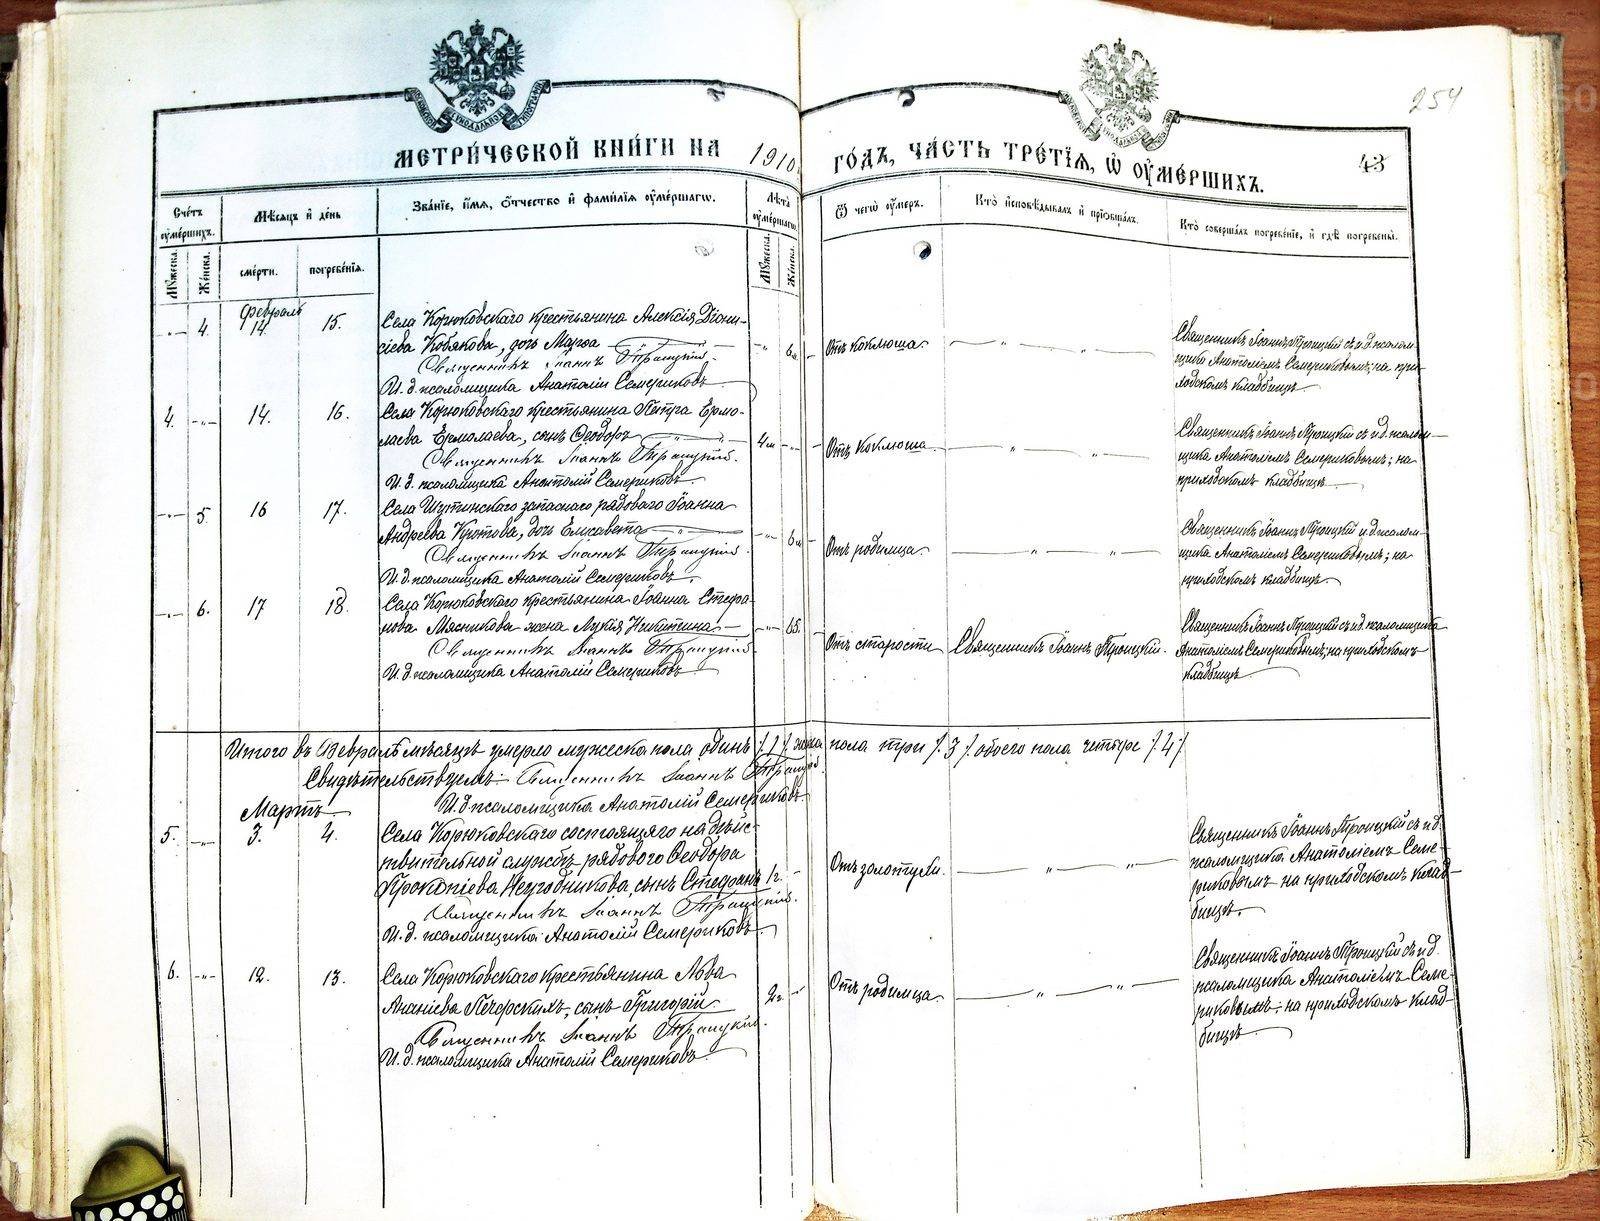 254
МЕТРИ́ЧЕСКОЙ КНИ́ГИ НА 1910 ГО́ДЪ, ЧА́СТЬ ТРЕ́ТІЯ, Ѡ҆ ОУ҆МЕ́РШИХЪ.
43
Сче́тъ оу҆ме́ршихъ.
Мѣ́сяцъ и҆ де́нь
Зва́ніе, и҆́мя, ѻ҆́тчество и҆ фами́лія оу҆ме́ршагѡ.
Лѣ́та оу҆ме́ршагѡ.
Ѿ чегѡ̀ оу҆́меръ.
Кто̀ и҆сповѣ́дывалъ и҆ прїѡбща́лъ.
Кто̀ соверша́лъ погребе́ніе, и҆ гдѣ̀ погребены̀.
Му́жеска.
Же́нска.
сме́рти.
погребе́нія.
Му́жеска.
Же́нска.
Февраль
4. 14. 15.
Села Корюковскаго крестьянина Алексія Діони-
сіева Кобякова, дочь Марѳа
Священникъ Іоаннъ Троицкій.
И. д. псаломщика Анатолій Семериковъ
6м
Отъ коклюша
Священникъ Іоаннъ Троицкій съ и.д. псалом-
щика Анатоліемъ Семериковымъ; на при-
ходскомъ кладбищѣ
4. 14. 16.
Села Корюковскаго крестьянина Петра Ермо-
лаева Ермолаева, сынъ Ѳеодоръ
Священникъ Іоаннъ Троицкій.
И. д. псаломщика Анатолій Семериковъ.
4м
Отъ коклюша
Священникъ Іоаннъ Троицкій съ и.д. псалом-
щика Анатоліемъ Семериковымъ; на
приходскомъ кладбищѣ
5. 16 17.
Села Шутинскаго запаснаго рядоваго Іоанна
Андреева Кротова, дочь Елисавета
Священникъ Іоаннъ Троицкій
И. д. псаломщика Анатолій Семериковъ.
6м
Отъ родимца
Священникъ Іоаннъ Троицкій съ и.д. псалом-
щика Анатоліемъ Семериковымъ; на
приходскомъ кладбищѣ
6. 17 18.
Села Корюковскаго крестьянина Іоанна Стефа-
нова Мясникова жена Лукія Никитина
Священникъ Іоаннъ Троицкій
И. д. псаломщика Анатолій Семериковъ
65.
Отъ старости
Священникъ Іоаннъ Троицкій.
Священникъ Іоаннъ Троицкій съ и.д. псаломщика
Анатоліемъ Семериковымъ; на приходскомъ
кладбищѣ
Итого въ Февралѣ мѣсяцѣ умерло мужеска пола одинъ /1/ женска пола три /3/ обоего пола четыре /4/
Свидѣтельствуемъ: Священникъ Іоаннъ Троицкій
И. д. псаломщика Анатолій Семериковъ
Мартъ
5. 3. 4.
Села Корюковскаго состоящаго на дѣйс-
твительной службѣ рядоваго Ѳеодора
Прокопіева Неугодникова, сынъ Стефанъ
Священникъ Іоаннъ Троицкій.
И. д. псаломщика Анатолій Семериковъ
1г.
Отъ золотухи.
Священникъ Іоаннъ Троицкій съ и.д.
псаломщика Анатоліемъ Семе-
риковымъ на приходскомъ клад-
бищѣ.
6. 12. 13.
Села Корюковскаго крестьянина Льва
Ананіева Печерскихъ, сынъ Григорій
Священникъ Іоаннъ Троицкій.
И. д. псаломщика Анатолій Семериковъ
2г.
Отъ родимца
Священникъ Іоаннъ Троицкій съ и.д.
псаломщика Анатоліемъ Семе-
риковымъ; на приходскомъ клад-
бищѣ